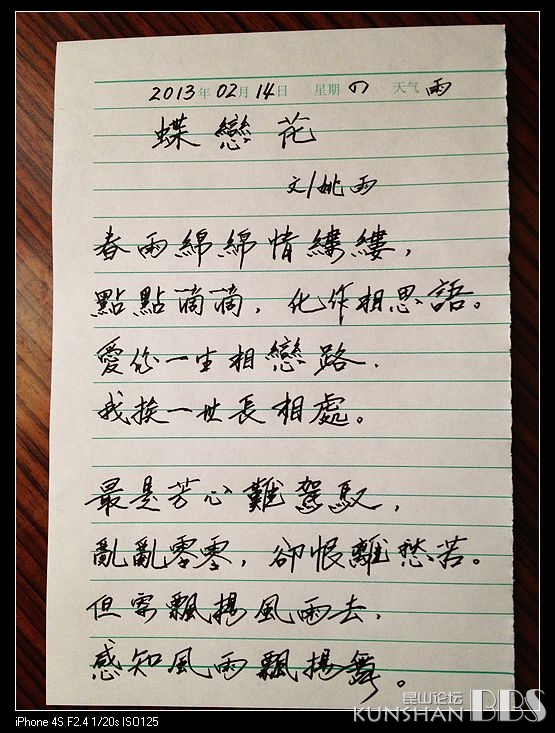 2013年02月14日 星期四 天气 雨
蝶戀花
文/姚雨
春雨綿綿情縷縷，
點點滴滴，化作相思語。
愛你一生相戀路，
我挨一世長相處。
最是芳心難駕馭，
亂亂零零，卻恨離愁苦。
但需飄揚風雨去，
感知風雨飄揚舞。
昆山论坛
KUNSHAN BBS
iPhone 4S F2.4 1/20s ISO125